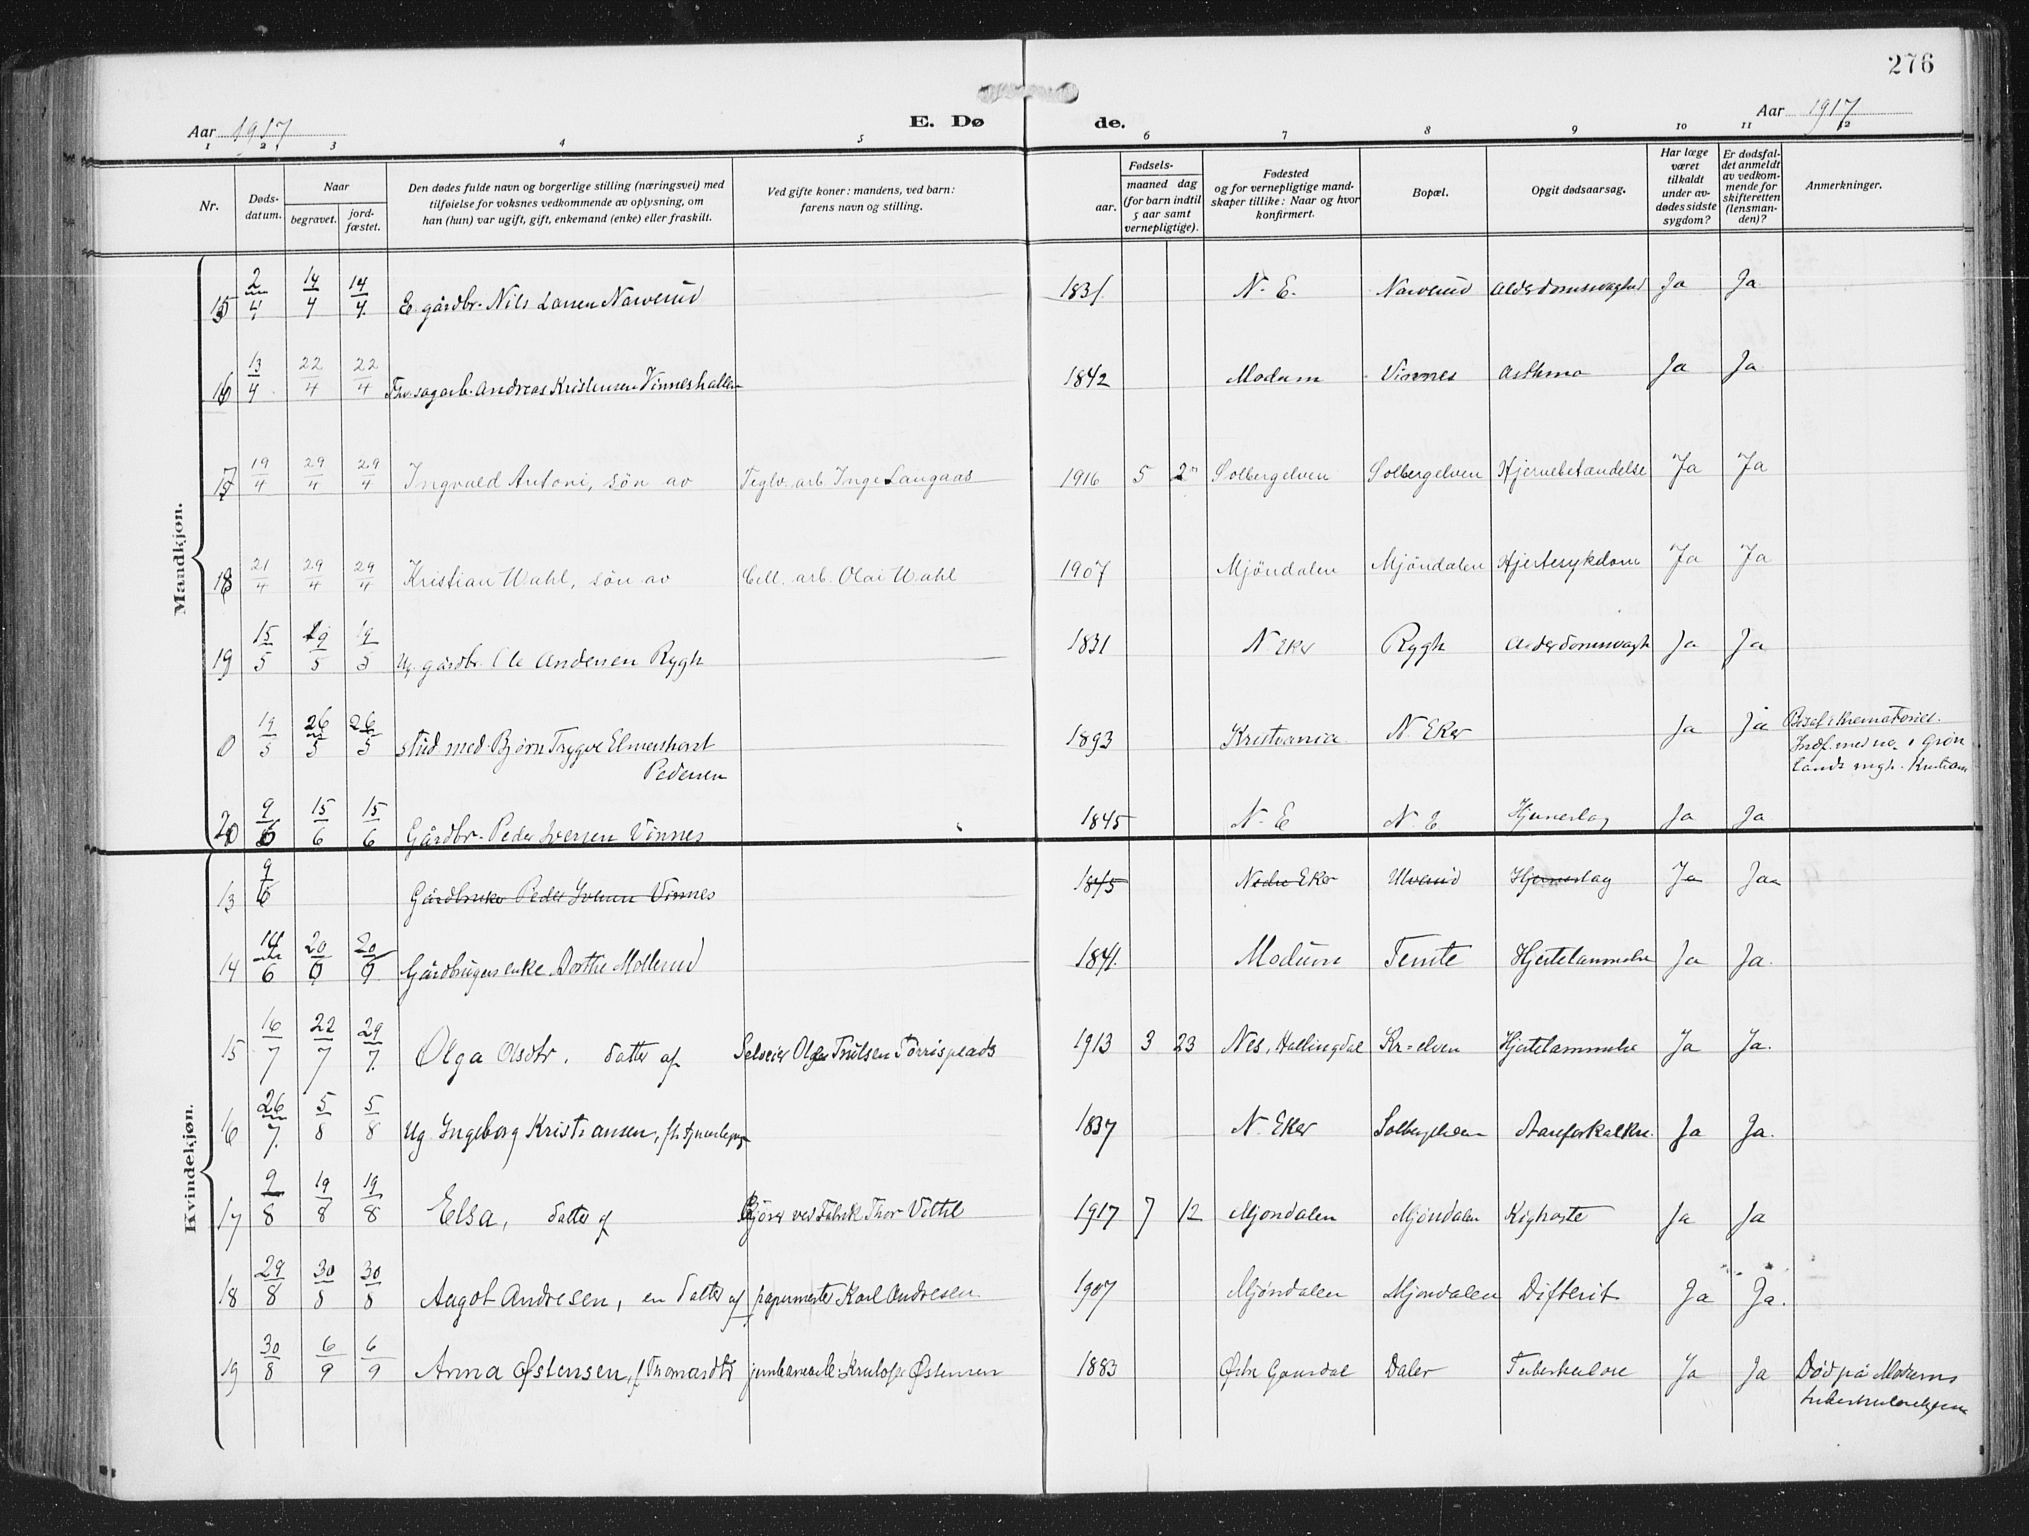 276
Aar 1917 E. Dø de. Aar 1917
1 2 3 4 5 6 7 8 9 10 11 12
Nr. Døds-datum. Naar begravet. jord-fæstet. Den dødes fulde navn og borgerlige stilling (næringsvei) med tilføielse for voksnes vedkommende av oplysning, om han (hun) var ugift, gift, enkemand (enke) eller fraskilt. Ved gifte koner: mandens, ved barn: farens navn og stilling. Fødsels- aar. maaned dag (for barn indtil 5 aar samt vernepligtige). Fødested og for vernepligtige mand-skaper tillike: Naar og hvor konfirmert. Bopæl. Opgit dødsaarsag. Har læge været tilkaldt under av-dødes sidste sygdom? Er dødsfal-det anmeldt av vedkom-mende for skifteretten (lensman-den)? Anmerkninger.
Mandkjøn.
15 2/4 14/4 14/4 E. gårdbr. Nils Larsen Narverud 1831 N. E. Narverud Alderdomssvaghed Ja Ja
16 13/4 22/4 22/4 Fhv. sagarb. Andreas Kristensen Vinneshallen 1842 Modum Vinnes Asthma Ja Ja
17 19/4 29/4 29/4 Ingvald Antoni, søn av Teglv. arb. Inge Langaas 1916 5 2 Solbergelven Solbergelven Hjernebetændelse Ja Ja
18 21/4 29/4 29/4 Kristian Wahl, søn av Cell. arb. Olai Wahl 1907 Mjöndalen Mjöndalen Hjertesykdom Ja Ja
19 15/5 19/5 19/5 Ug. gårdbr. Ole Andersen Rygh 1831 N Eker Rygh Alderdomssvagh Ja Ja
0 19/5 26/5 26/5 stud med. Bjørn Trygve Elmenhorst 1893 Kristiania N Eker Ja Ja Bisat i Krematoriet.
Pedersen Indf. med no i Grøn
lands mgh. Kristiania
20 9/6 15/6 15/6 Gårdbr. Peder Iversen Vinnes 1845 N. E N. E Hjerneslag Ja Ja
Kvindekjøn.
13 9/6 Gårdbruker Peder Iversen Vinnes 1845 Nedre Eker Ulverud Hjerneslag Ja Ja
14 14/6 20/6 20/6 Gårdbrugerenke Dorthe Mollerud 1841. Modum Temte Hjertelammelse Ja Ja.
15 16/7 22/7 29/7. Olga Olsdtr. datter af Selveier Truls­en Torrisplads 1913 3 23 Nes, Hallingdal Kr=elven Hjertelammelse Ja Ja.
16 26/7. 5/8 5/8 Ug. Ingeborg Kristiansen, 1837 N. Eker Solbergelven Aareforkalkn. Ja Ja.
17 9/8 19/8 19/8 Elsa, datter af ved Fabrik Thor 1917 7 12 Mjøndalen Mjøndalen Kighoste Ja Ja
18 29/8 30/8 30/8 Aagot Andresen, en datter af papirmester Karl Andresen. 1907 Mjøndalen Mjøndalen Difterit Ja Ja.
19 30/8 6/9 6/9 Anna Østensen, f. Thomasdtr Østensen 1883 Østre Gausdal Daler Tuberkulose Ja Ja Død på Modums
tuberkulosehjem